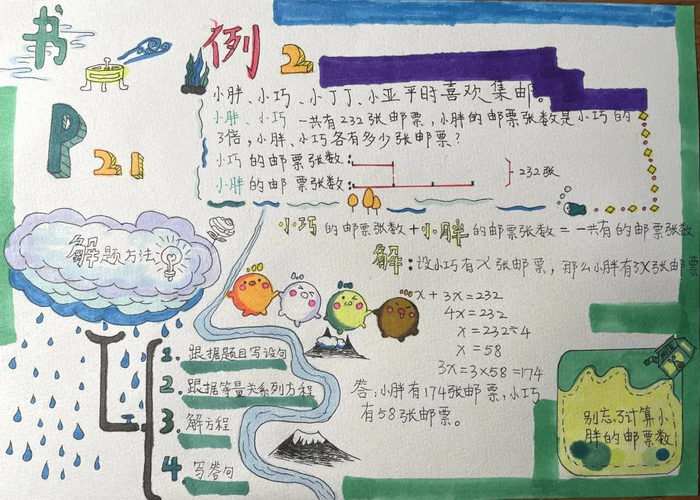 书
P21
例2
小胖、小巧、小丁丁、小亚平时喜欢集邮。
小胖、小巧一共有232张邮票,小胖的邮票张数是小巧的
3倍,小胖、小巧各有多少张邮票?
小巧的邮票张数:
小胖的邮票张数:
232张
小巧的邮票张数+小胖的邮票张数=一共有的邮票张数
解:设小巧有x张邮票,那么小胖有3x张邮票
x+3x=232
4x=232
x=232÷4
x=58
3x=3×58=174
答:小胖有174张邮票,小巧
有58张邮票。
解题方法
1. 跟据题目写设句
2. 跟据等量关系列方程
3. 解方程
4 写答句
别忘了计算小
胖的邮票数